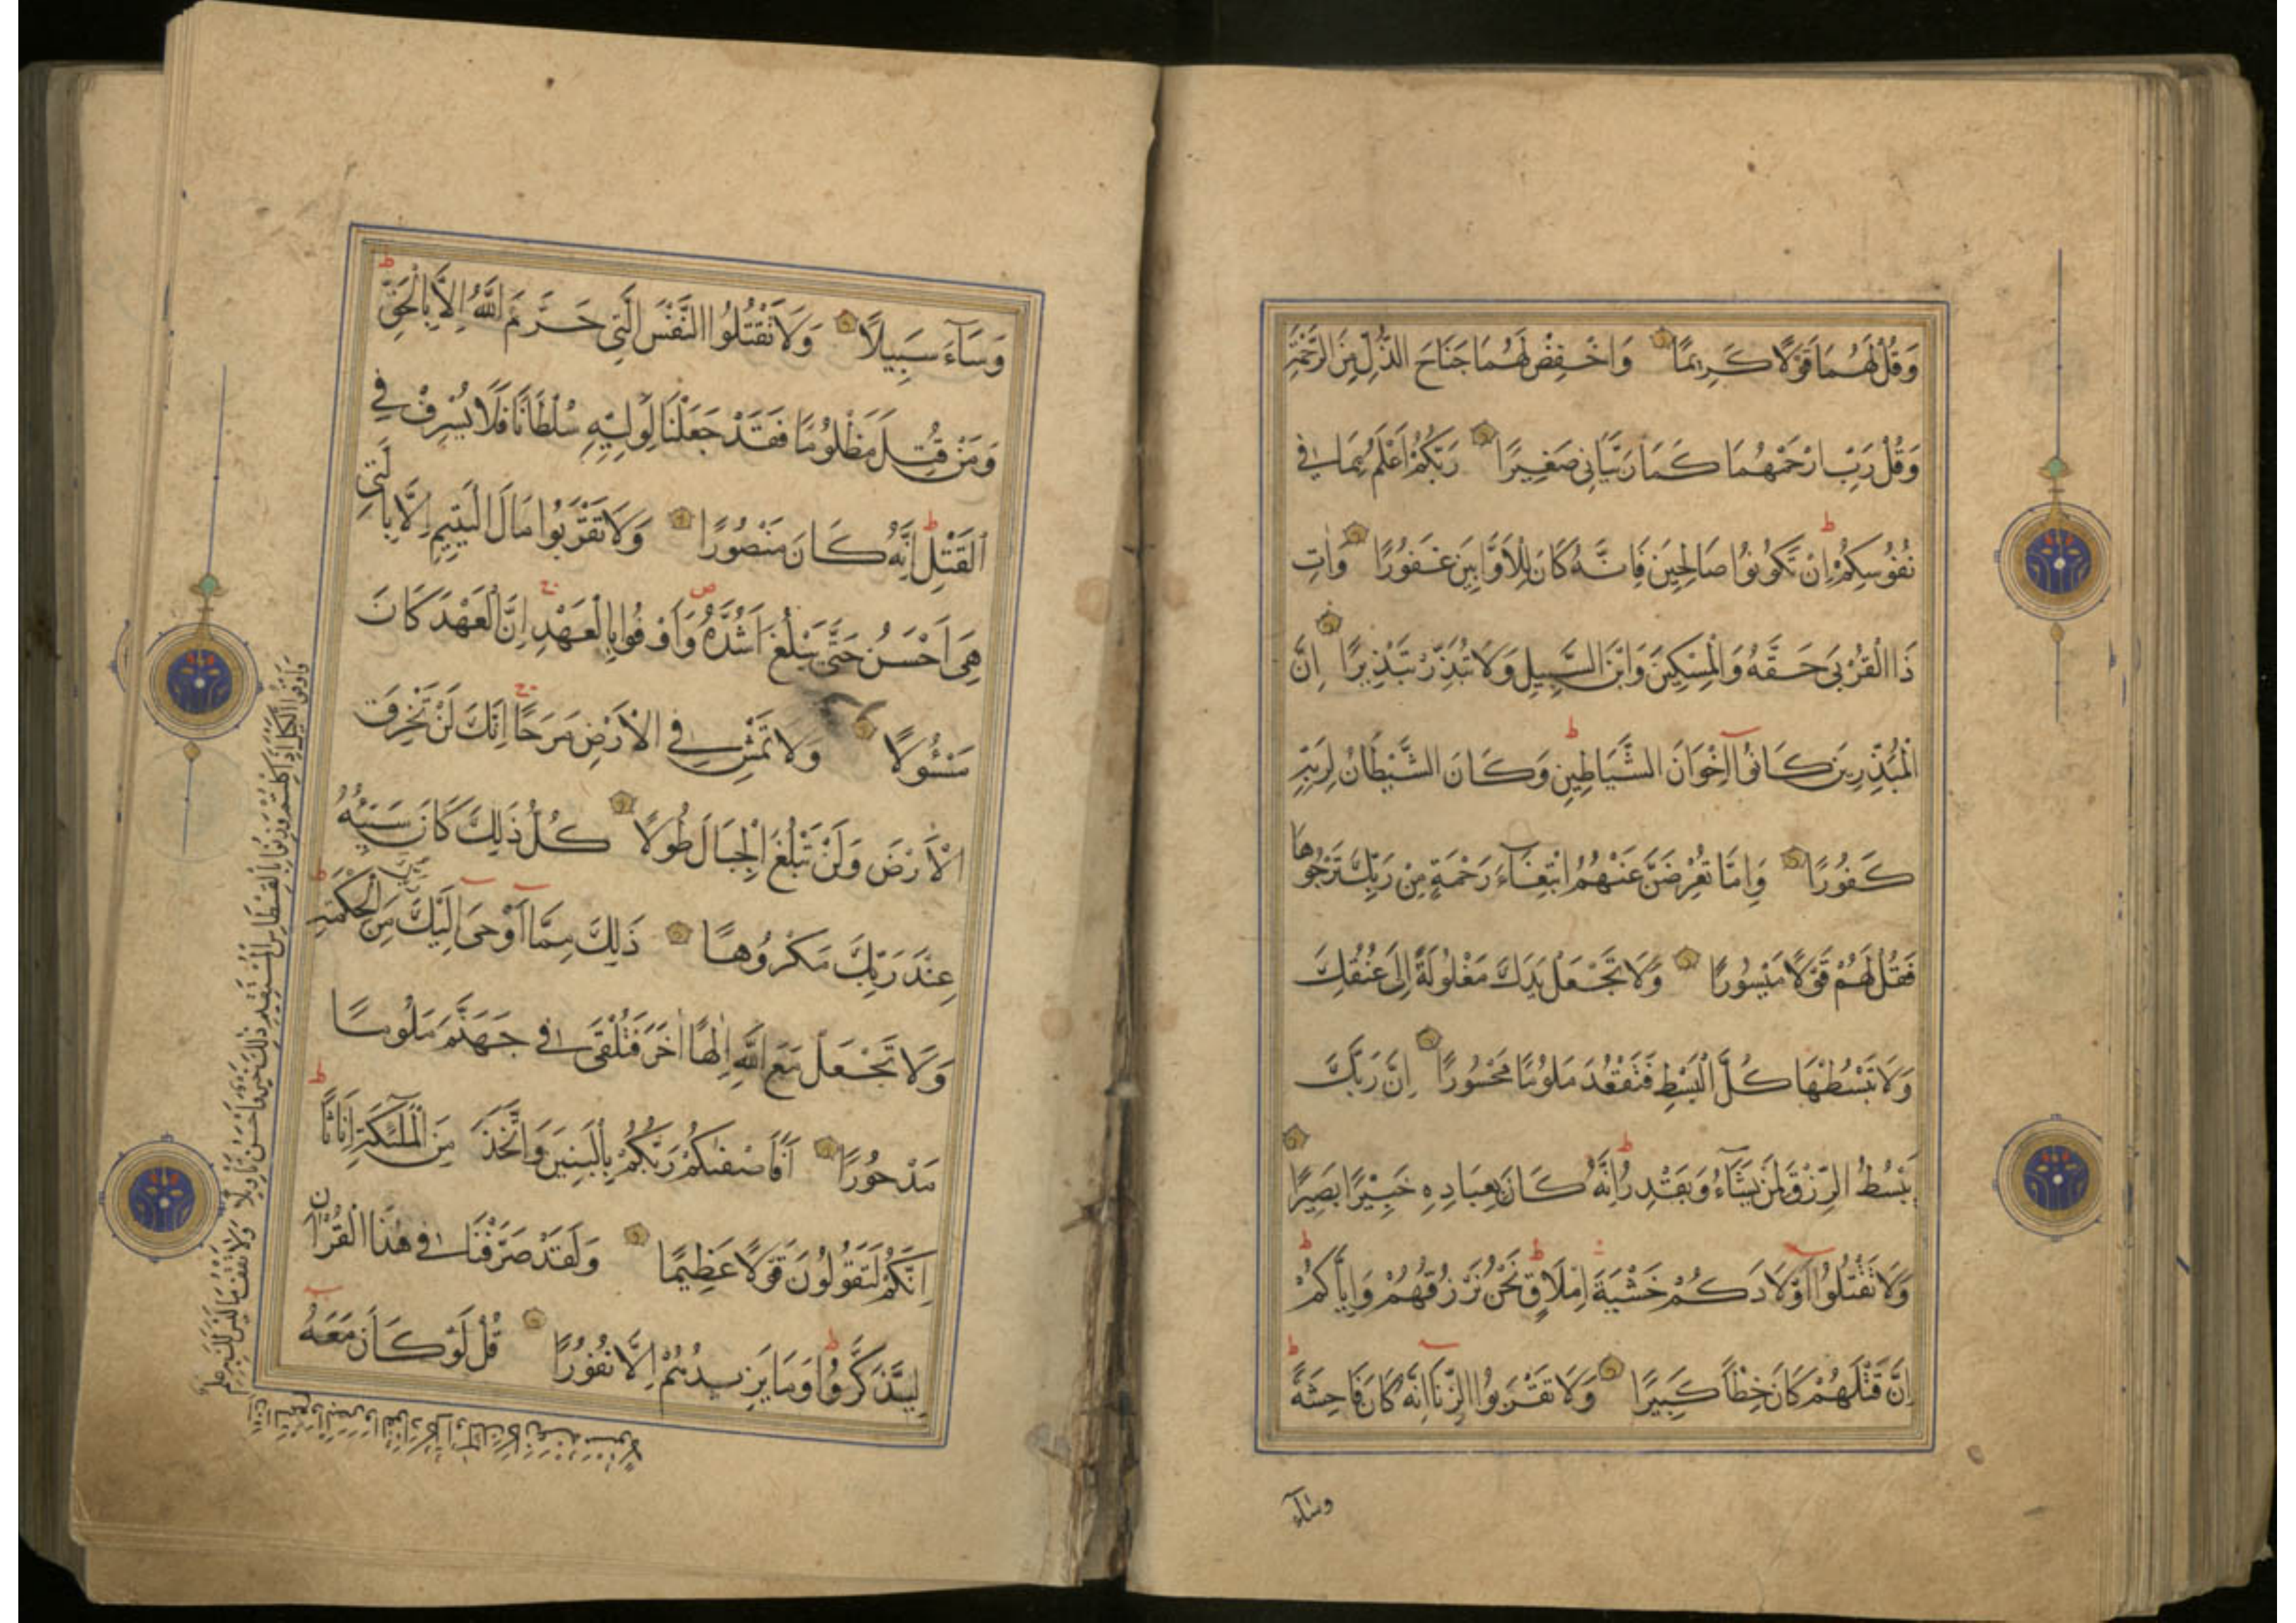 وَقُلْ لَهُمَا قَوْلًا كَرِيمًا وَاخْفِضْ لَهُمَا جَنَاحَ الذُّلِّ مِنَ الرَّحْمَةِ
وَقُلْ رَبِّ ارْحَمْهُمَا كَمَا رَبَّيَانِي صَغِيرًا رَبُّكُمْ أَعْلَمُ بِمَا فِي
نُفُوسِكُمْ اِنْ تَكُونُوا صَالِحِينَ فَاِنَّهُ كَانَ لِلْاَوَّابِينَ غَفُورًا وَاٰتِ
ذَا الْقُرْبَى حَقَّهُ وَالْمِسْكِينَ وَابْنَ السَّبِيلِ وَلَا تُبَذِّرْ تَبْذِيرًا اِنَّ
الْمُبَذِّرِينَ كَانُوا اِخْوَانَ الشَّيَاطِينِ وَكَانَ الشَّيْطَانُ لِرَبِّهِ
كَفُورًا وَاِمَّا تُعْرِضَنَّ عَنْهُمُ ابْتِغَاءَ رَحْمَةٍ مِنْ رَبِّكَ تَرْجُوهَا
فَقُلْ لَهُمْ قَوْلًا مَيْسُورًا وَلَا تَجْعَلْ يَدَكَ مَغْلُولَةً اِلَى عُنُقِكَ
وَلَا تَبْسُطْهَا كُلَّ الْبَسْطِ فَتَقْعُدَ مَلُومًا مَحْسُورًا اِنَّ رَبَّكَ
يَبْسُطُ الرِّزْقَ لِمَنْ يَشَآءُ وَيَقْدِرُ اِنَّهُ كَانَ بِعِبَادِهِ خَبِيْرًا بَصِيرًا
وَلَا تَقْتُلُوا اَوْلَادَكُمْ خَشْيَةَ اِمْلَاقٍ نَحْنُ نَرْزُقُهُمْ وَاِيَّاكُمْ
اِنَّ قَتْلَهُمْ كَانَ خِطْأً كَبِيرًا وَلَا تَقْرَبُوا الزِّنَا اِنَّهُ كَانَ فَاحِشَةً
وساء
وَسَآءَ سَبِيلًا وَلَا تَقْتُلُوا النَّفْسَ الَّتِي حَرَّمَ اللّٰهُ اِلَّا بِالْحَقِّ
وَمَنْ قُتِلَ مَظْلُومًا فَقَدْ جَعَلْنَا لِوَلِيِّهِ سُلْطَانًا فَلَا يُسْرِفْ فِي
الْقَتْلِ اِنَّهُ كَانَ مَنْصُورًا وَلَا تَقْرَبُوا مَالَ الْيَتِيمِ اِلَّا بِالَّتِي
هِيَ اَحْسَنُ حَتَّى يَبْلُغَ اَشُدَّهُ وَاَوْفُوا بِالْعَهْدِ اِنَّ الْعَهْدَ كَانَ
مَسْئُولًا وَلَا تَمْشِ فِي الْاَرْضِ مَرَحًا اِنَّكَ لَنْ تَخْرِقَ
الْاَرْضَ وَلَنْ تَبْلُغَ الْجِبَالَ طُولًا كُلُّ ذَلِكَ كَانَ سَيِّئُهُ
عِنْدَ رَبِّكَ مَكْرُوهًا ذَلِكَ مِمَّا اَوْحَى اِلَيْكَ رَبُّكَ مِنَ الْحِكْمَةِ
وَلَا تَجْعَلْ مَعَ اللّٰهِ اِلٰهًا اٰخَرَ فَتُلْقَى فِي جَهَنَّمَ مَلُومًا
مَدْحُورًا اَفَاَصْفٰىكُمْ رَبُّكُمْ بِالْبَنِينَ وَاتَّخَذَ مِنَ الْمَلٰئِكَةِ اِنَاثًا
اِنَّكُمْ لَتَقُولُونَ قَوْلًا عَظِيمًا وَلَقَدْ صَرَّفْنَا فِي هٰذَا الْقُرْاٰنِ
لِيَذَّكَّرُوا وَمَا يَزِيدُهُمْ اِلَّا نُفُورًا قُلْ لَوْ كَانَ مَعَهُ
وَاَوْفُوا الْكَيْلَ اِذَا كِلْتُمْ وَزِنُوا بِالْقِسْطَاسِ الْمُسْتَقِيمِ ذٰلِكَ خَيْرٌ وَاَحْسَنُ تَاْوِيلًا وَلَا تَقْفُ مَا لَيْسَ لَكَ بِهِ عِلْمٌ
اِنَّ السَّمْعَ وَالْبَصَرَ وَالْفُؤَادَ كُلُّ اُولٰئِكَ كَانَ عَنْهُ مَسْئُولًا